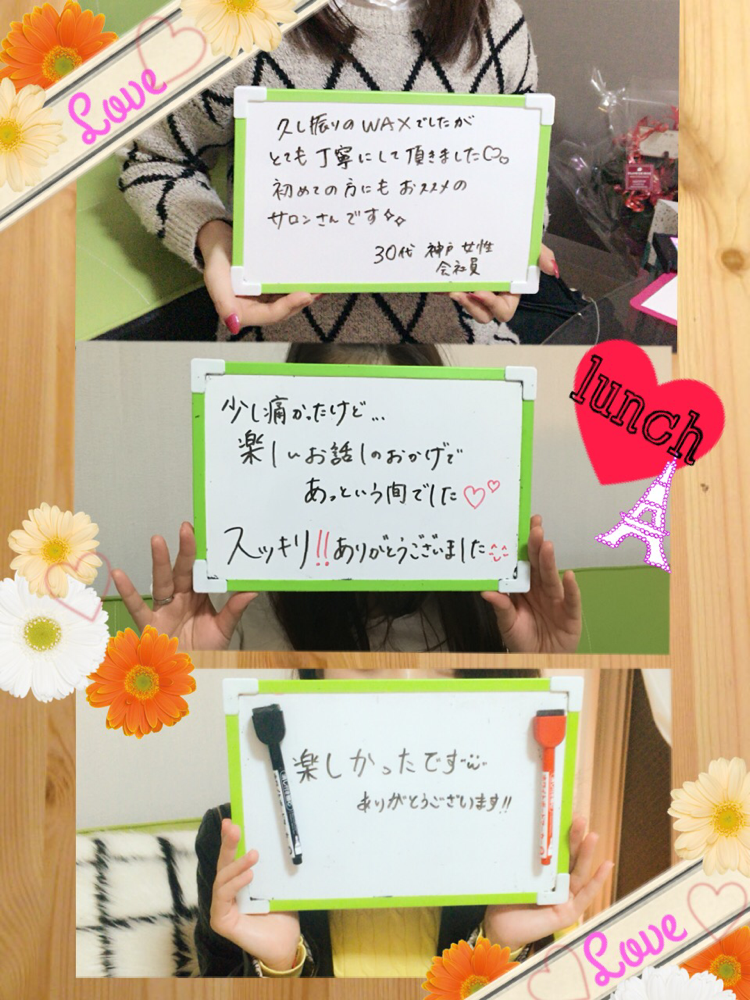 Love
久し振りのWAXでしたが
とても丁寧にして頂きました♡。
初めての方にもおススメの
サロンさんです✧✧
30代 神戸 女性
会社員
少し痛かったけど...
楽しいお話しのおかげで
あっという間でした♡♡
スッキリ!!ありがとうございました
lunch
楽しかったです
ありがとうございます!!
Love